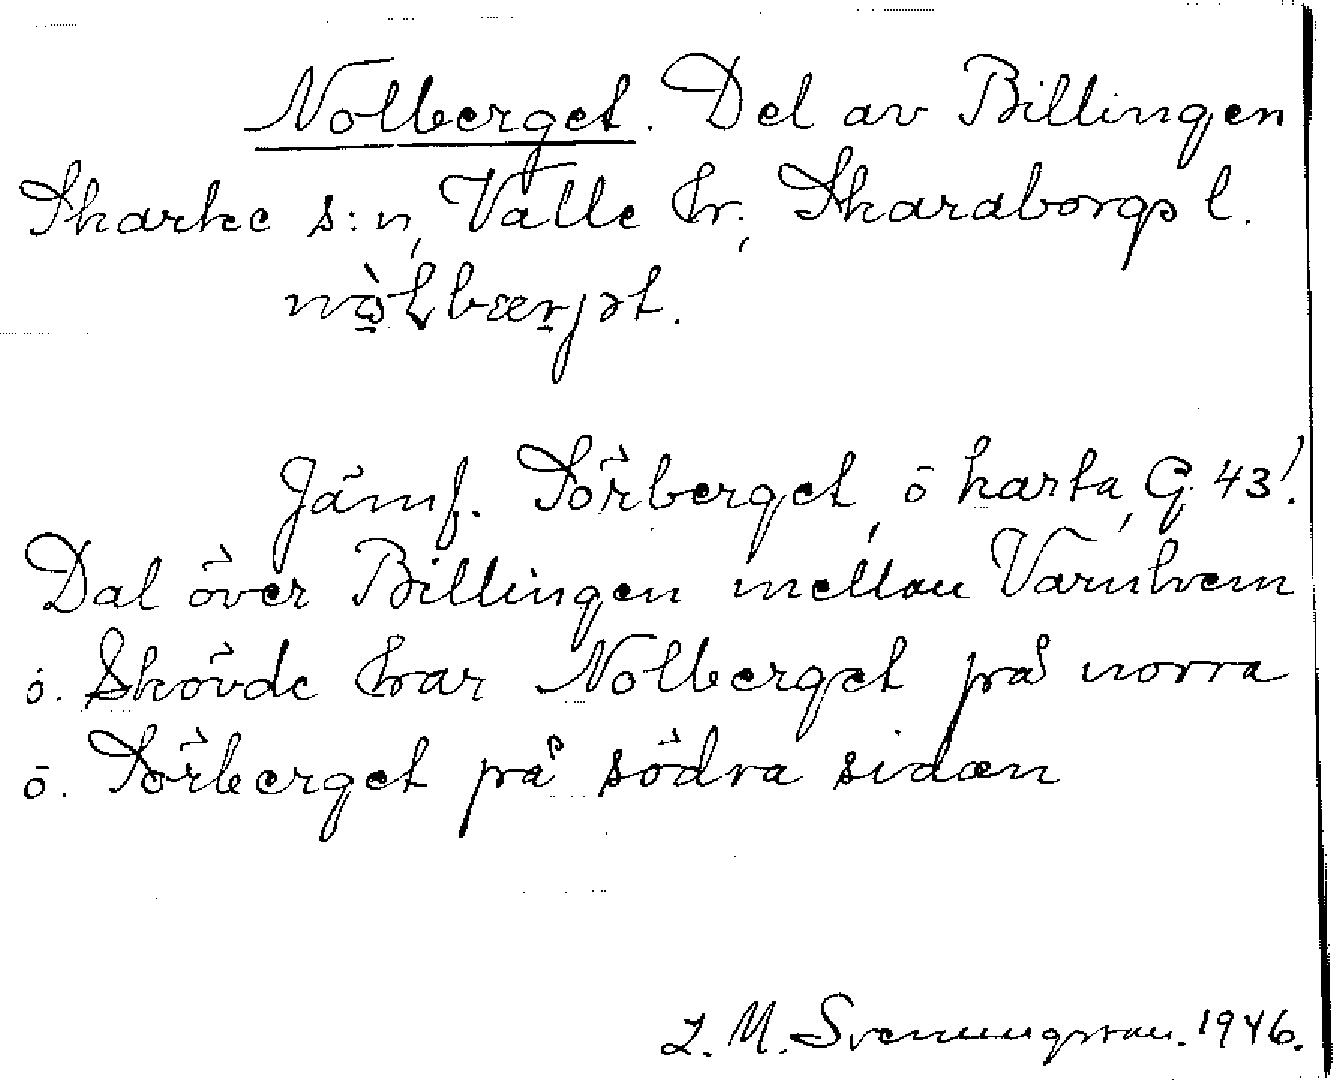 Nolberget. Del av Billingen
Skarke s:n, Valle hr., Skaraborgs l.
Jämf. Sörberget, å karta, G 43!
Dal över Billingen mellan Varnhem
o. Skövde har Nolberget på norra
o. Sörberget på södra sidan
L. M. Svenungsson. 1946.